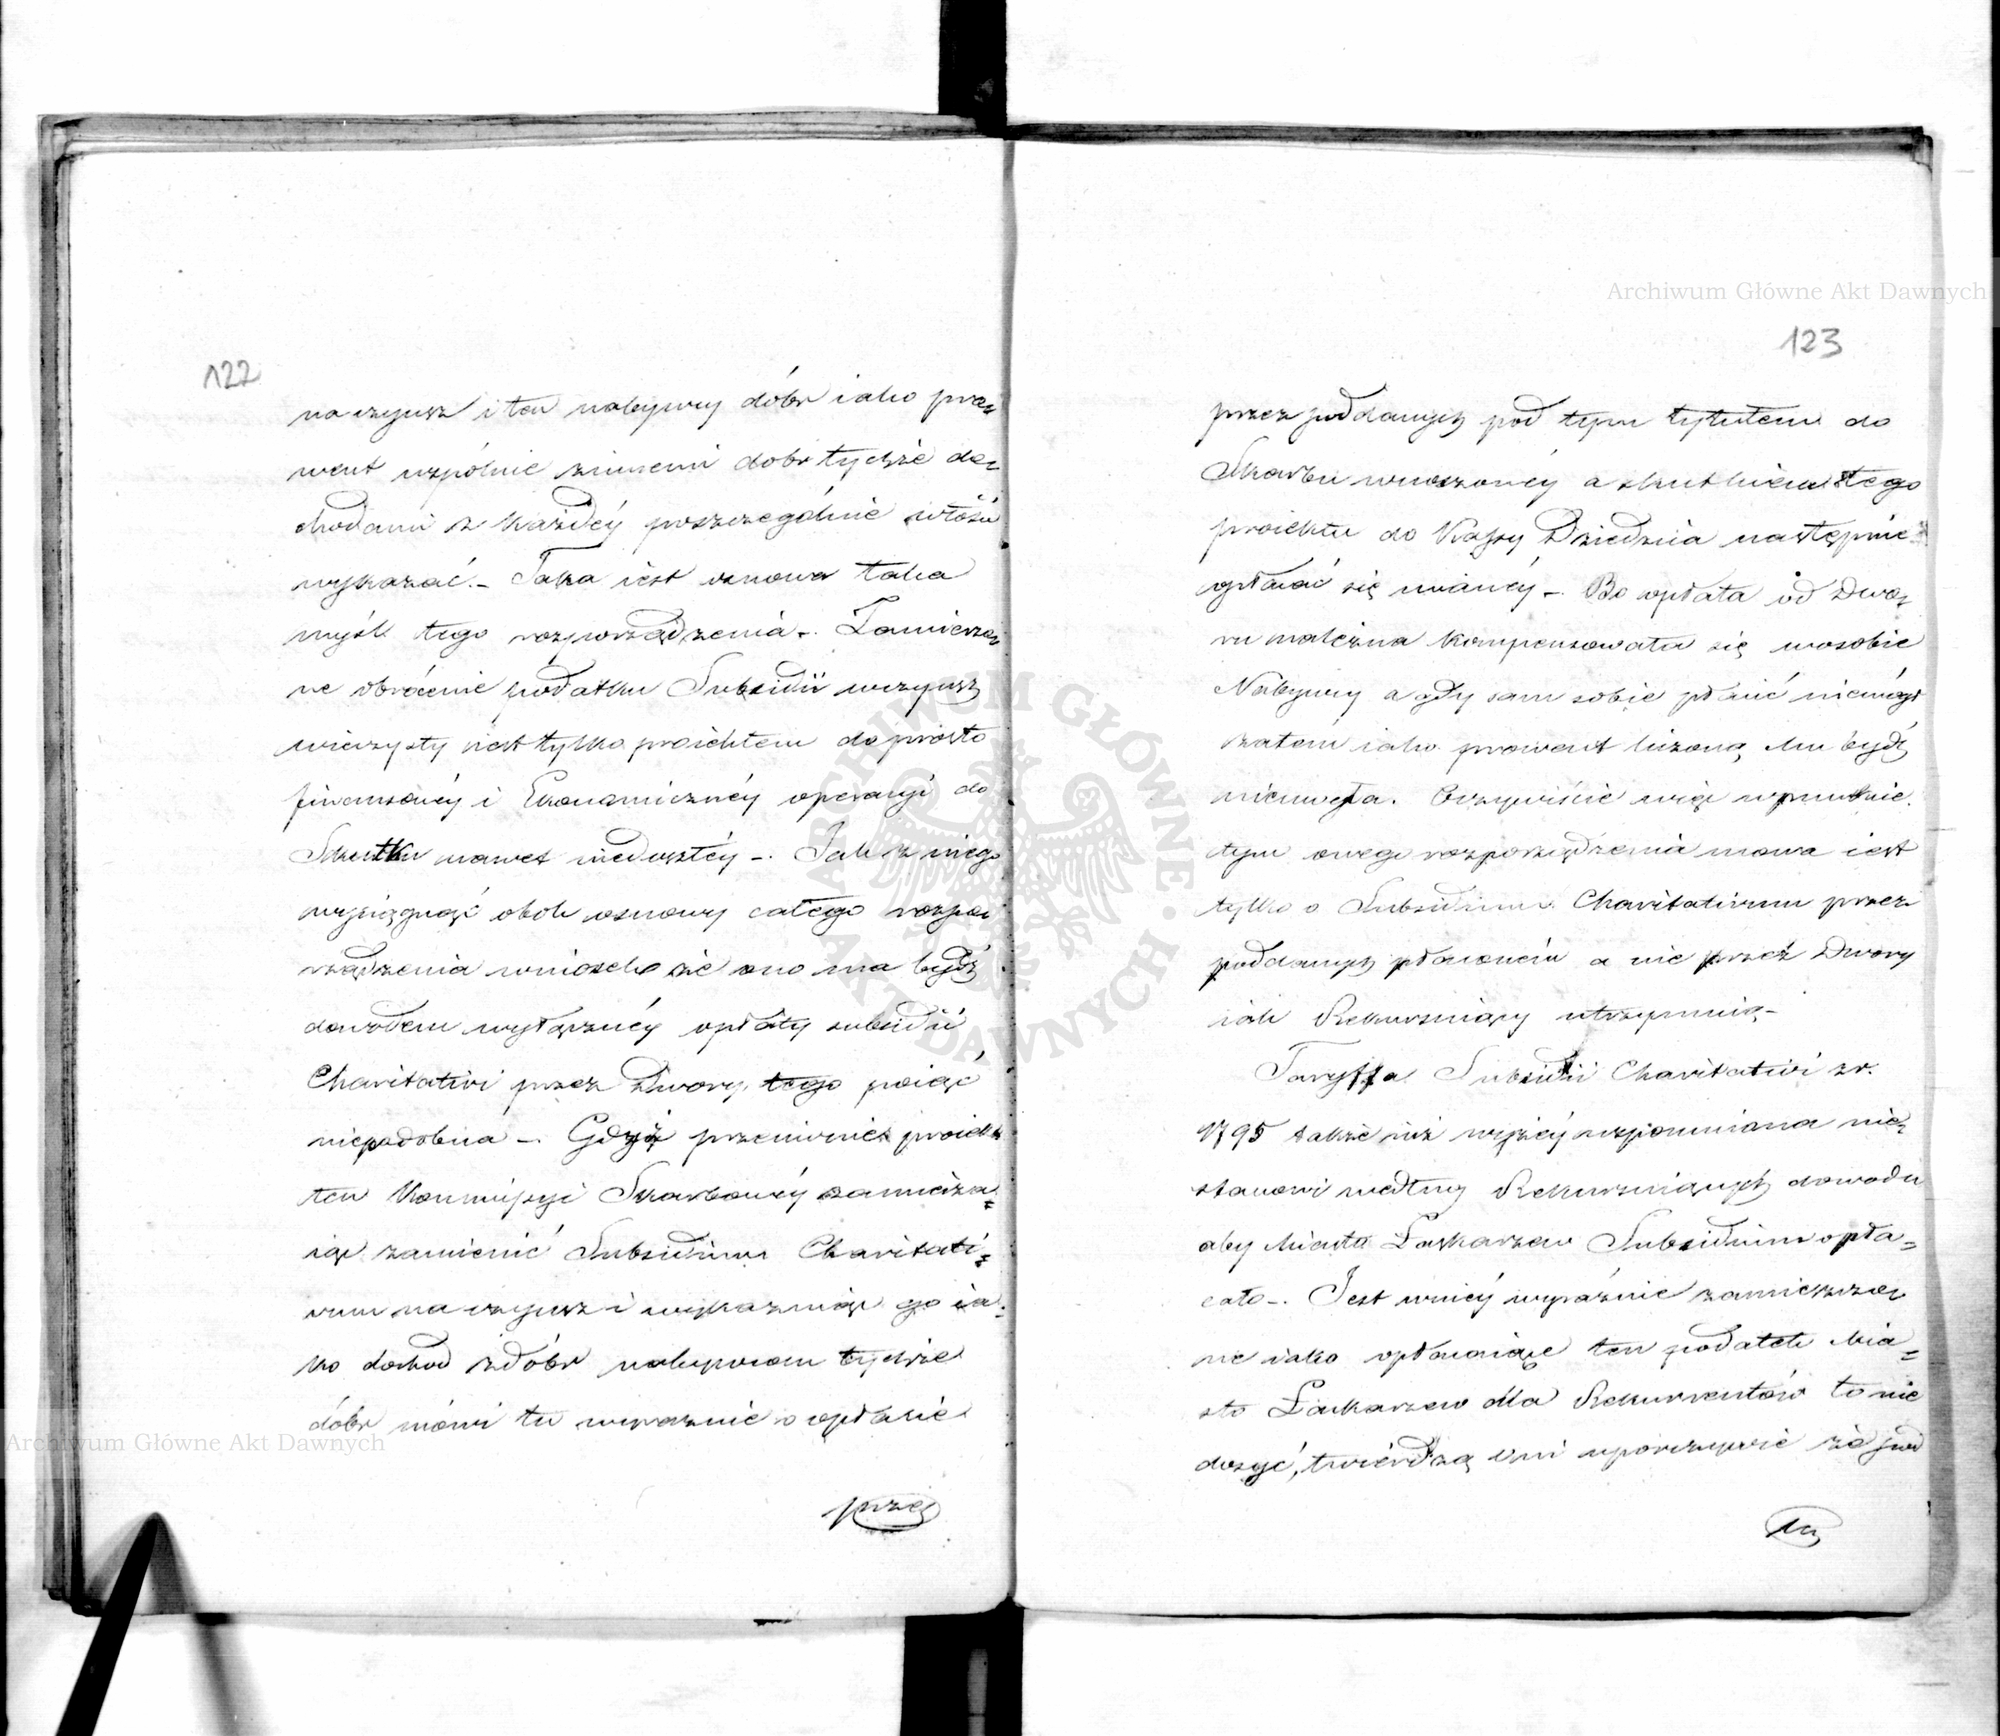 122
na czynsz i ten nabywcy dóbr iako pro⸗
went wspólnie z innemi dobr tychże do⸗
chodami z każdéy poszczególnie włości
wykazać.– Taka iest osnowa taka
myśl tego rozporządzenia–. Zamierzo⸗
ne obrócenie podatku Subsidii w czynsz
wieczysty iest tylko proiektem do prosto
finansowéy i Ekonomicznéy operacyi do
Skutku nawet niedoszłéy –. Jak z niego
wyciągnąć obok osnowy całego rozpo⸗
rządzenia wniosek że ono ma bydź
dowodem wyłącznéy opłaty subsidii
Charitativi przez Dwory, tego poiąć
niepodobna –. Gdyż przeciwnie proiekt
ten Kommissyi Skarbowéy zamierza⸗
iąc zamienić Subsidium Charitati⸗
vum na czynsz i wykazuiąc go ia⸗
ko dochod z dóbr nabywcom tychże
dóbr mówi tu wyraznie o opłacie
przez
Archiwum Główne Akt Dawnych
Archiwum Główne Akt Dawnych
123
przez poddanych pod tym tytułem do
Skarbu wnoszonéy a skutkiem tego
proiektu do Kassy Dziedzica następnie
opłacać się maiącéy –. Bo opłata od Dwo⸗
ru należna kompensowała się w osobie
Nabywcy a gdy sam sobie płacić niemógł
zatem iako prowent liczoną Mu bydź
niemogła. Oczywiście więc w punkcie
tym owego rozporządzenia mowa iest
tylko o Subsidium Charitativum przez
poddanych płaconém a nie przez Dwory
iak Rekursuiący utrzymuią–
Taryffa Subsidii Charitativi z r.
1795 także iuż wyżéy wspomniana nie⸗
stanowi według Rekursuiących dowodu
aby Miasto Łaskarzew Subsidium opła⸗
cało –. Jest w niéy wyraźnie zamieszczo⸗
ne iako opłacaiące ten podatek Mia⸗
sto Łaskarzew dla Rekurrentów to nie
dosyć, twierdzą oni uporczywie że pod
ARCHIWUM GŁÓWNE AKT DAWNYCH